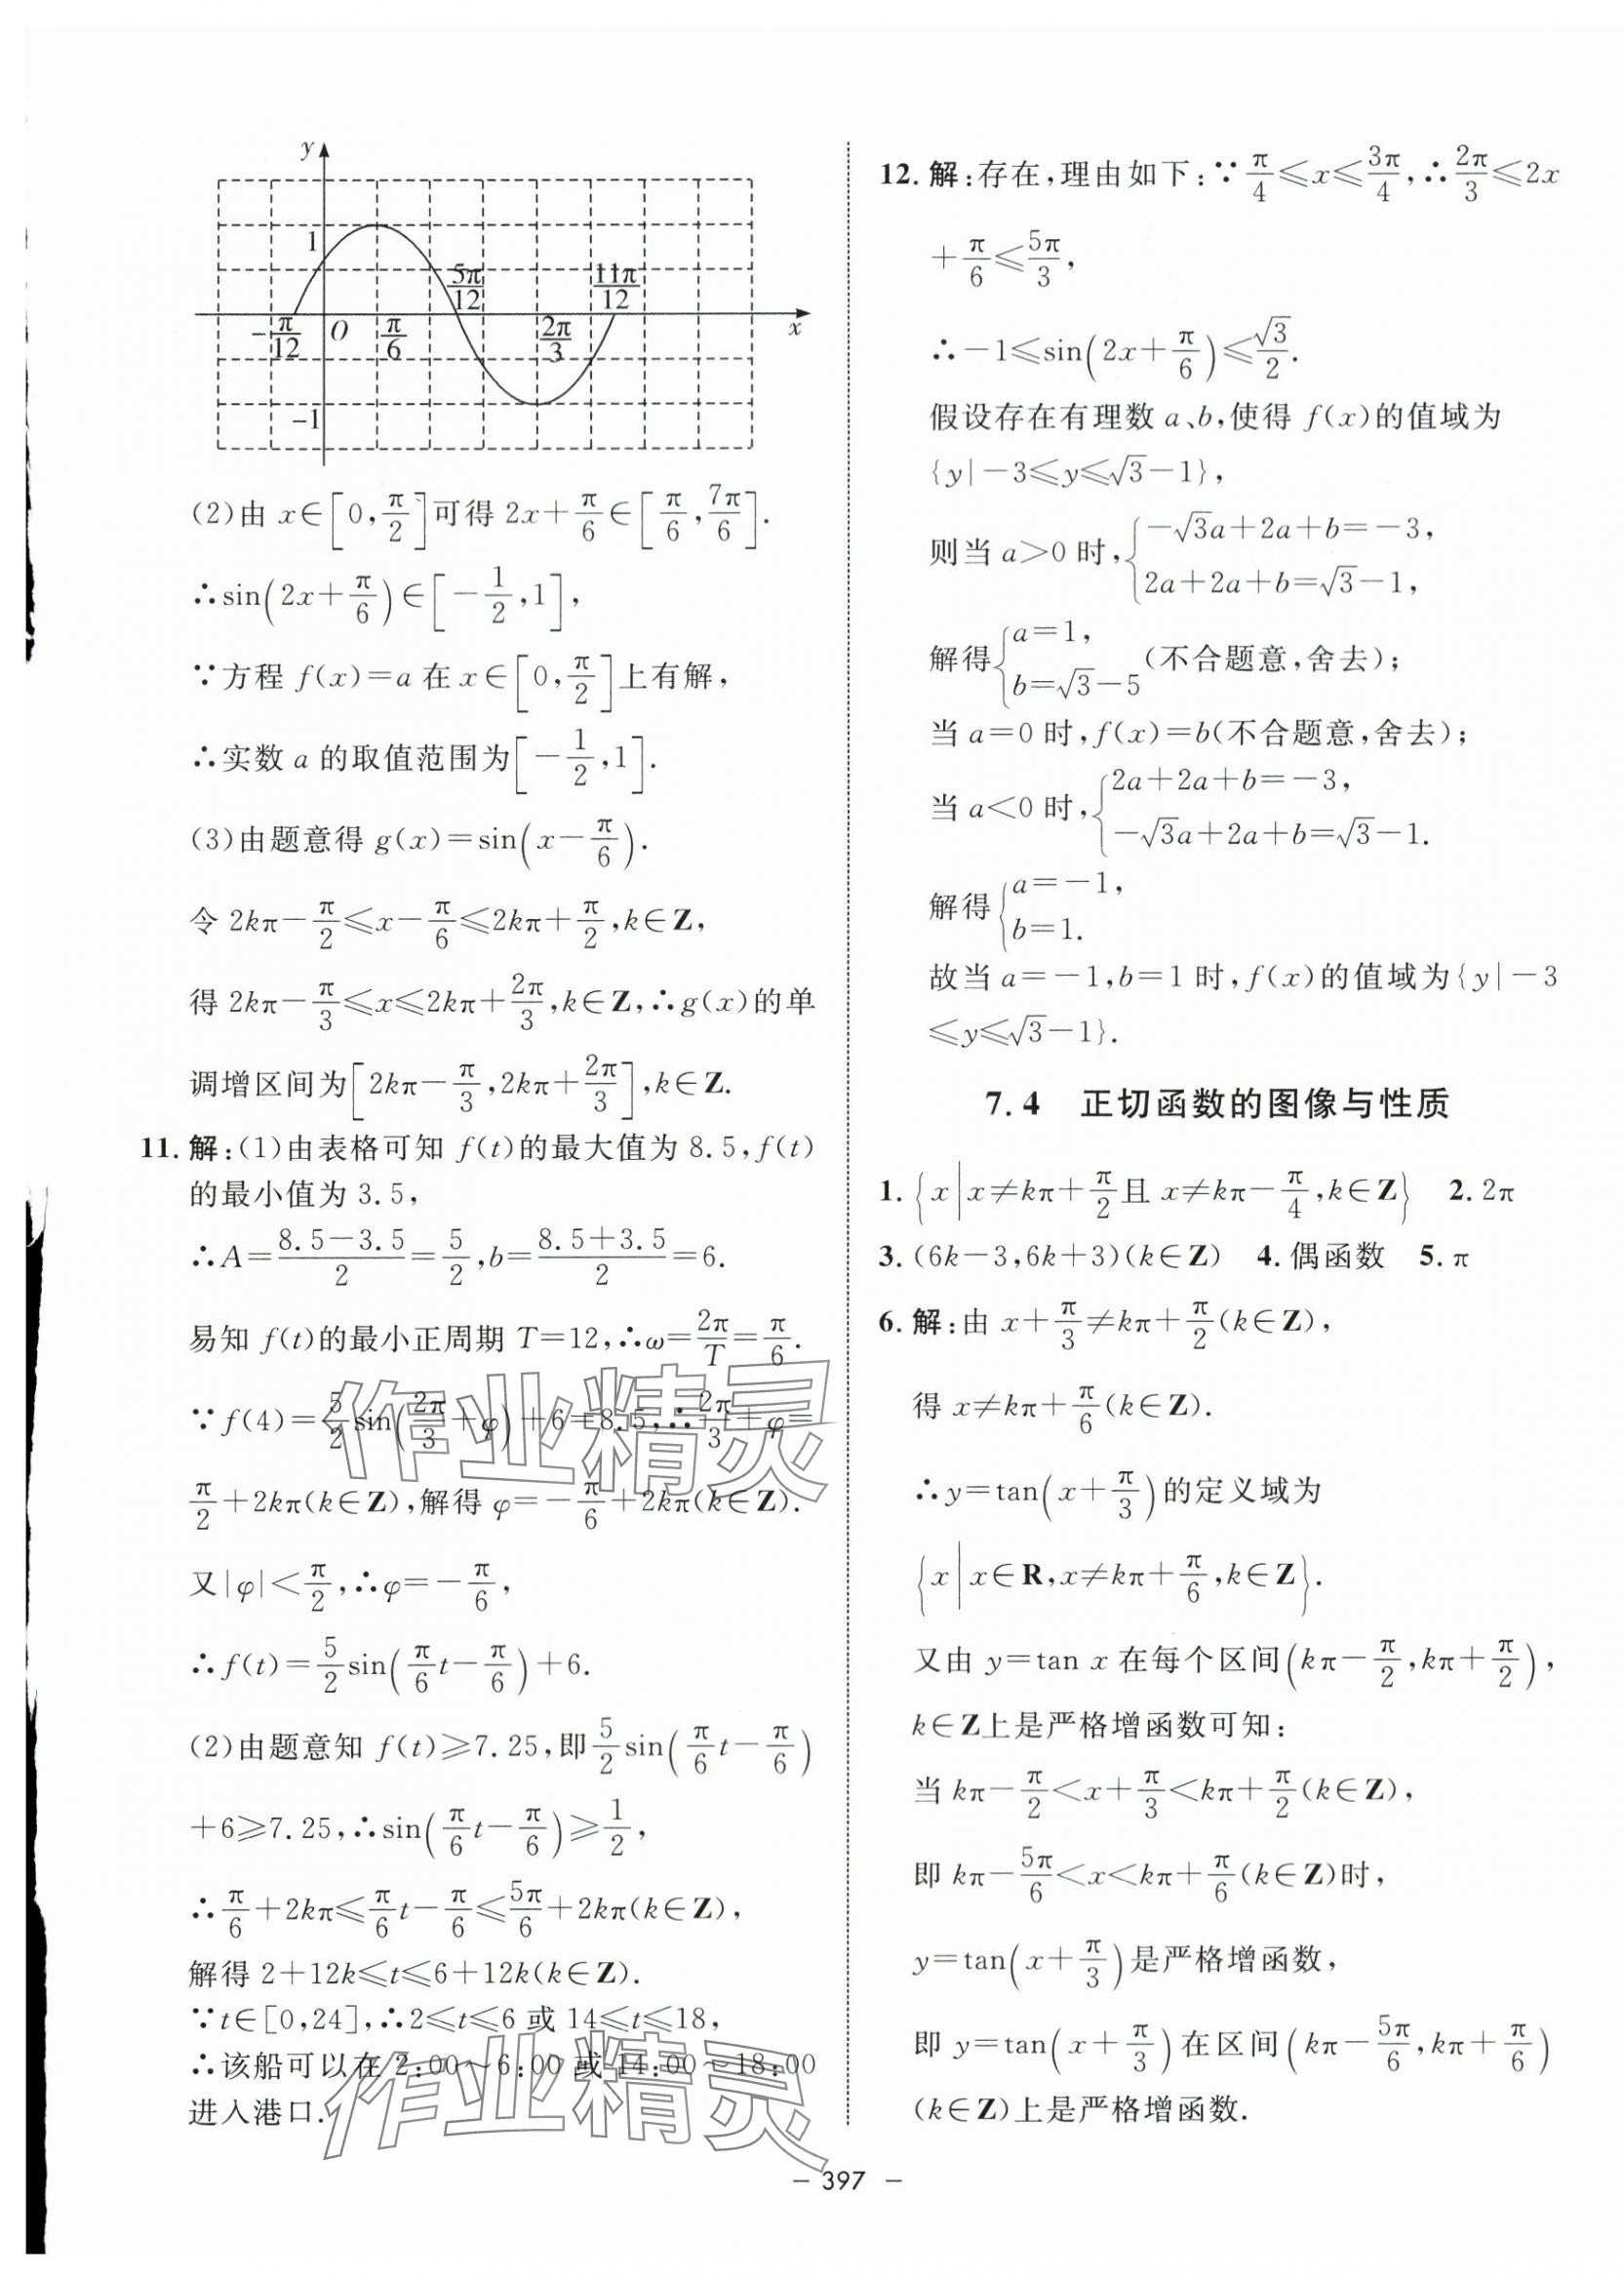 y
1
5π/12
11π/12
-π/12
O
π/6
2π/3
x
-1
(2)由 x∈[0,π/2]可得 2x+π/6∈[π/6,7π/6].
∴sin(2x+π/6)∈[-1/2,1],
∵方程 f(x)=a 在 x∈[0,π/2]上有解,
∴实数 a 的取值范围为[-1/2,1].
(3)由题意得 g(x)=sin(x-π/6).
令 2kπ-π/2≤x-π/6≤2kπ+π/2,k∈Z,
得 2kπ-π/3≤x≤2kπ+2π/3,k∈Z,∴g(x)的单
调增区间为[2kπ-π/3,2kπ+2π/3],k∈Z.
11. 解:(1)由表格可知 f(t)的最大值为 8.5,f(t)
的最小值为 3.5,
∴A=(8.5-3.5)/2=5/2,b=(8.5+3.5)/2=6.
易知 f(t)的最小正周期 T=12,∴ω=2π/T=π/6.
∵f(4)=5/2sin(2π/3+φ)+6=8.5,∴2π/3+φ=
π/2+2kπ(k∈Z),解得 φ=-π/6+2kπ(k∈Z).
又|φ|<π/2,∴φ=-π/6,
∴f(t)=5/2sin(π/6t-π/6)+6.
(2)由题意知 f(t)≥7.25,即5/2sin(π/6t-π/6)
+6≥7.25,∴sin(π/6t-π/6)≥1/2,
∴π/6+2kπ≤π/6t-π/6≤5π/6+2kπ(k∈Z),
解得 2+12k≤t≤6+12k(k∈Z).
∵t∈[0,24],∴2≤t≤6 或 14≤t≤18,
∴该船可以在 2:00~6:00 或 14:00~18:00
进入港口.
12. 解:存在,理由如下:∵π/4≤x≤3π/4,∴2π/3≤2x
+π/6≤5π/3,
∴-1≤sin(2x+π/6)≤√3/2.
假设存在有理数 a、b,使得 f(x)的值域为
{y|-3≤y≤√3-1},
则当 a>0 时,{-√3a+2a+b=-3,
2a+2a+b=√3-1,
解得{a=1,
b=√3-5 (不合题意,舍去);
当 a=0 时,f(x)=b(不合题意,舍去);
当 a<0 时,{2a+2a+b=-3,
-√3a+2a+b=√3-1.
解得{a=-1,
b=1.
故当 a=-1,b=1 时,f(x)的值域为{y|-3
≤y≤√3-1}.
7.4 正切函数的图像与性质
1. {x|x≠kπ+π/2且 x≠kπ-π/4,k∈Z} 2. 2π
3. (6k-3,6k+3)(k∈Z) 4. 偶函数 5. π
6. 解:由 x+π/3≠kπ+π/2(k∈Z),
得 x≠kπ+π/6(k∈Z).
∴y=tan(x+π/3)的定义域为
{x|x∈R,x≠kπ+π/6,k∈Z}.
又由 y=tan x 在每个区间(kπ-π/2,kπ+π/2),
k∈Z上是严格增函数可知:
当 kπ-π/2<x+π/3<kπ+π/2(k∈Z),
即 kπ-5π/6<x<kπ+π/6(k∈Z)时,
y=tan(x+π/3)是严格增函数,
即 y=tan(x+π/3)在区间(kπ-5π/6,kπ+π/6)
(k∈Z)上是严格增函数.
作业精灵
作业精灵
- 397 -